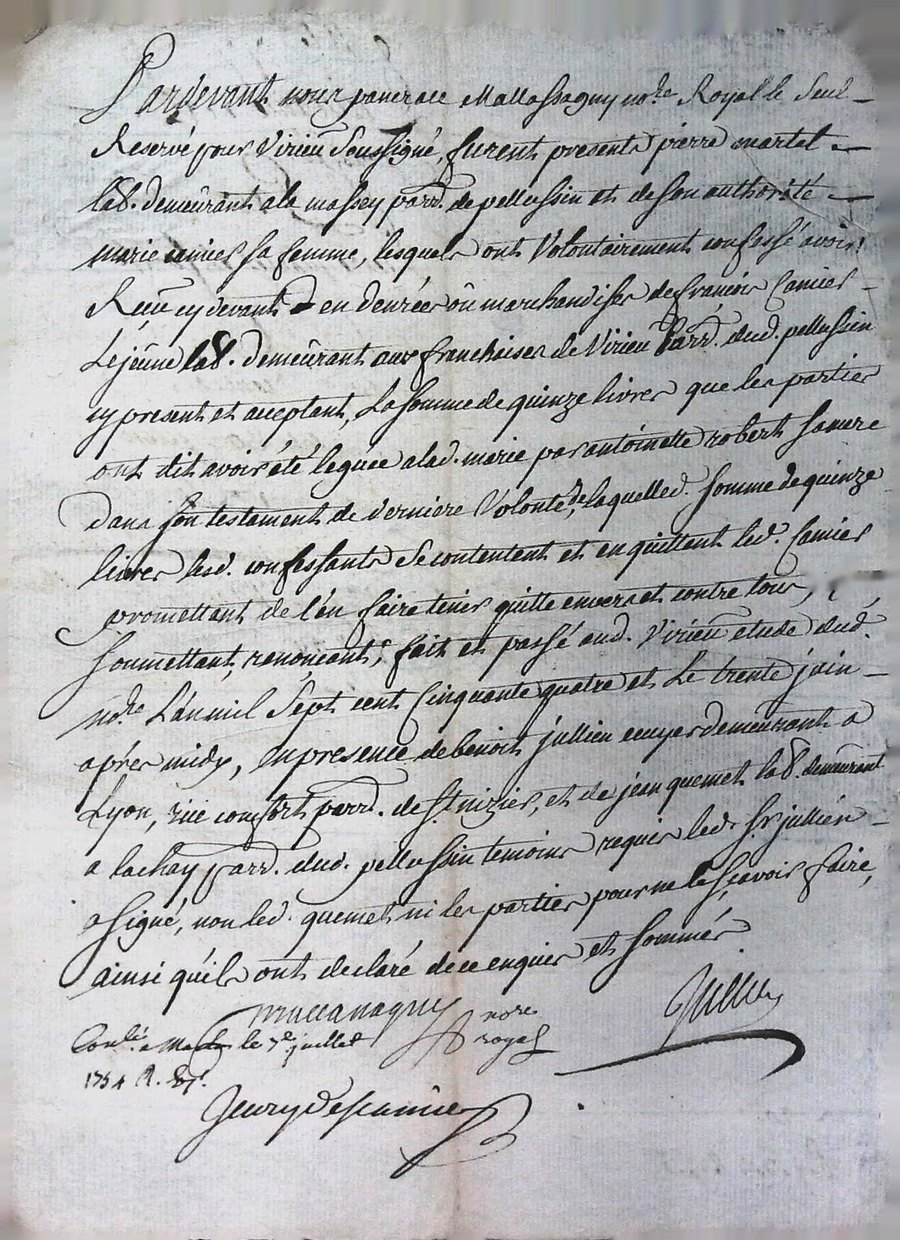 Pardevant nous pancrace Mallassagny no.re Royal le Seul
Reservé pour Virieu Soussigné, furent presents pierre martel
lab. demeurant a la massey parr. de pellussin et de son authorité
marie camier sa femme, lesquels ont Volontairement confessé avoir
Receu cy devant en denrées ou marchandises de françois Camier
Le jeune lab. demeurant aux franchises de Virieu parr. dud. pellussin
cy present et acceptant, La somme de quinze livres que les parties
ont dit avoir été leguée a lad. marie par antoinette robert sa mere
dans son testament de derniere Volonté, de laquelle d. somme de quinze
livres lesd. confessants se contentent et en quittent led. Camier
promettant de l'en faire tenir quitte envers et contre tous,
soumettant, renonçant; fait et passé aud. Virieu etude dud.
no.re L'an mil Sept cent Cinquante quatre et Le trente juin
après midy, En presence de benoit jullien ecuyer demeurant a
Lyon, rue confort parr. de St nizier, et de jean quemet lab. demeurant
a lachay parr. dud. pellussin temoins requis led. Sr jullien
a signé, non led. quemet ni les parties pour ne le sçavoir faire,
ainsi qu'ils ont declaré de ce enquis et sommés
Jullien
nore
royal
Con.lé a le 7e juillet
1754 R.